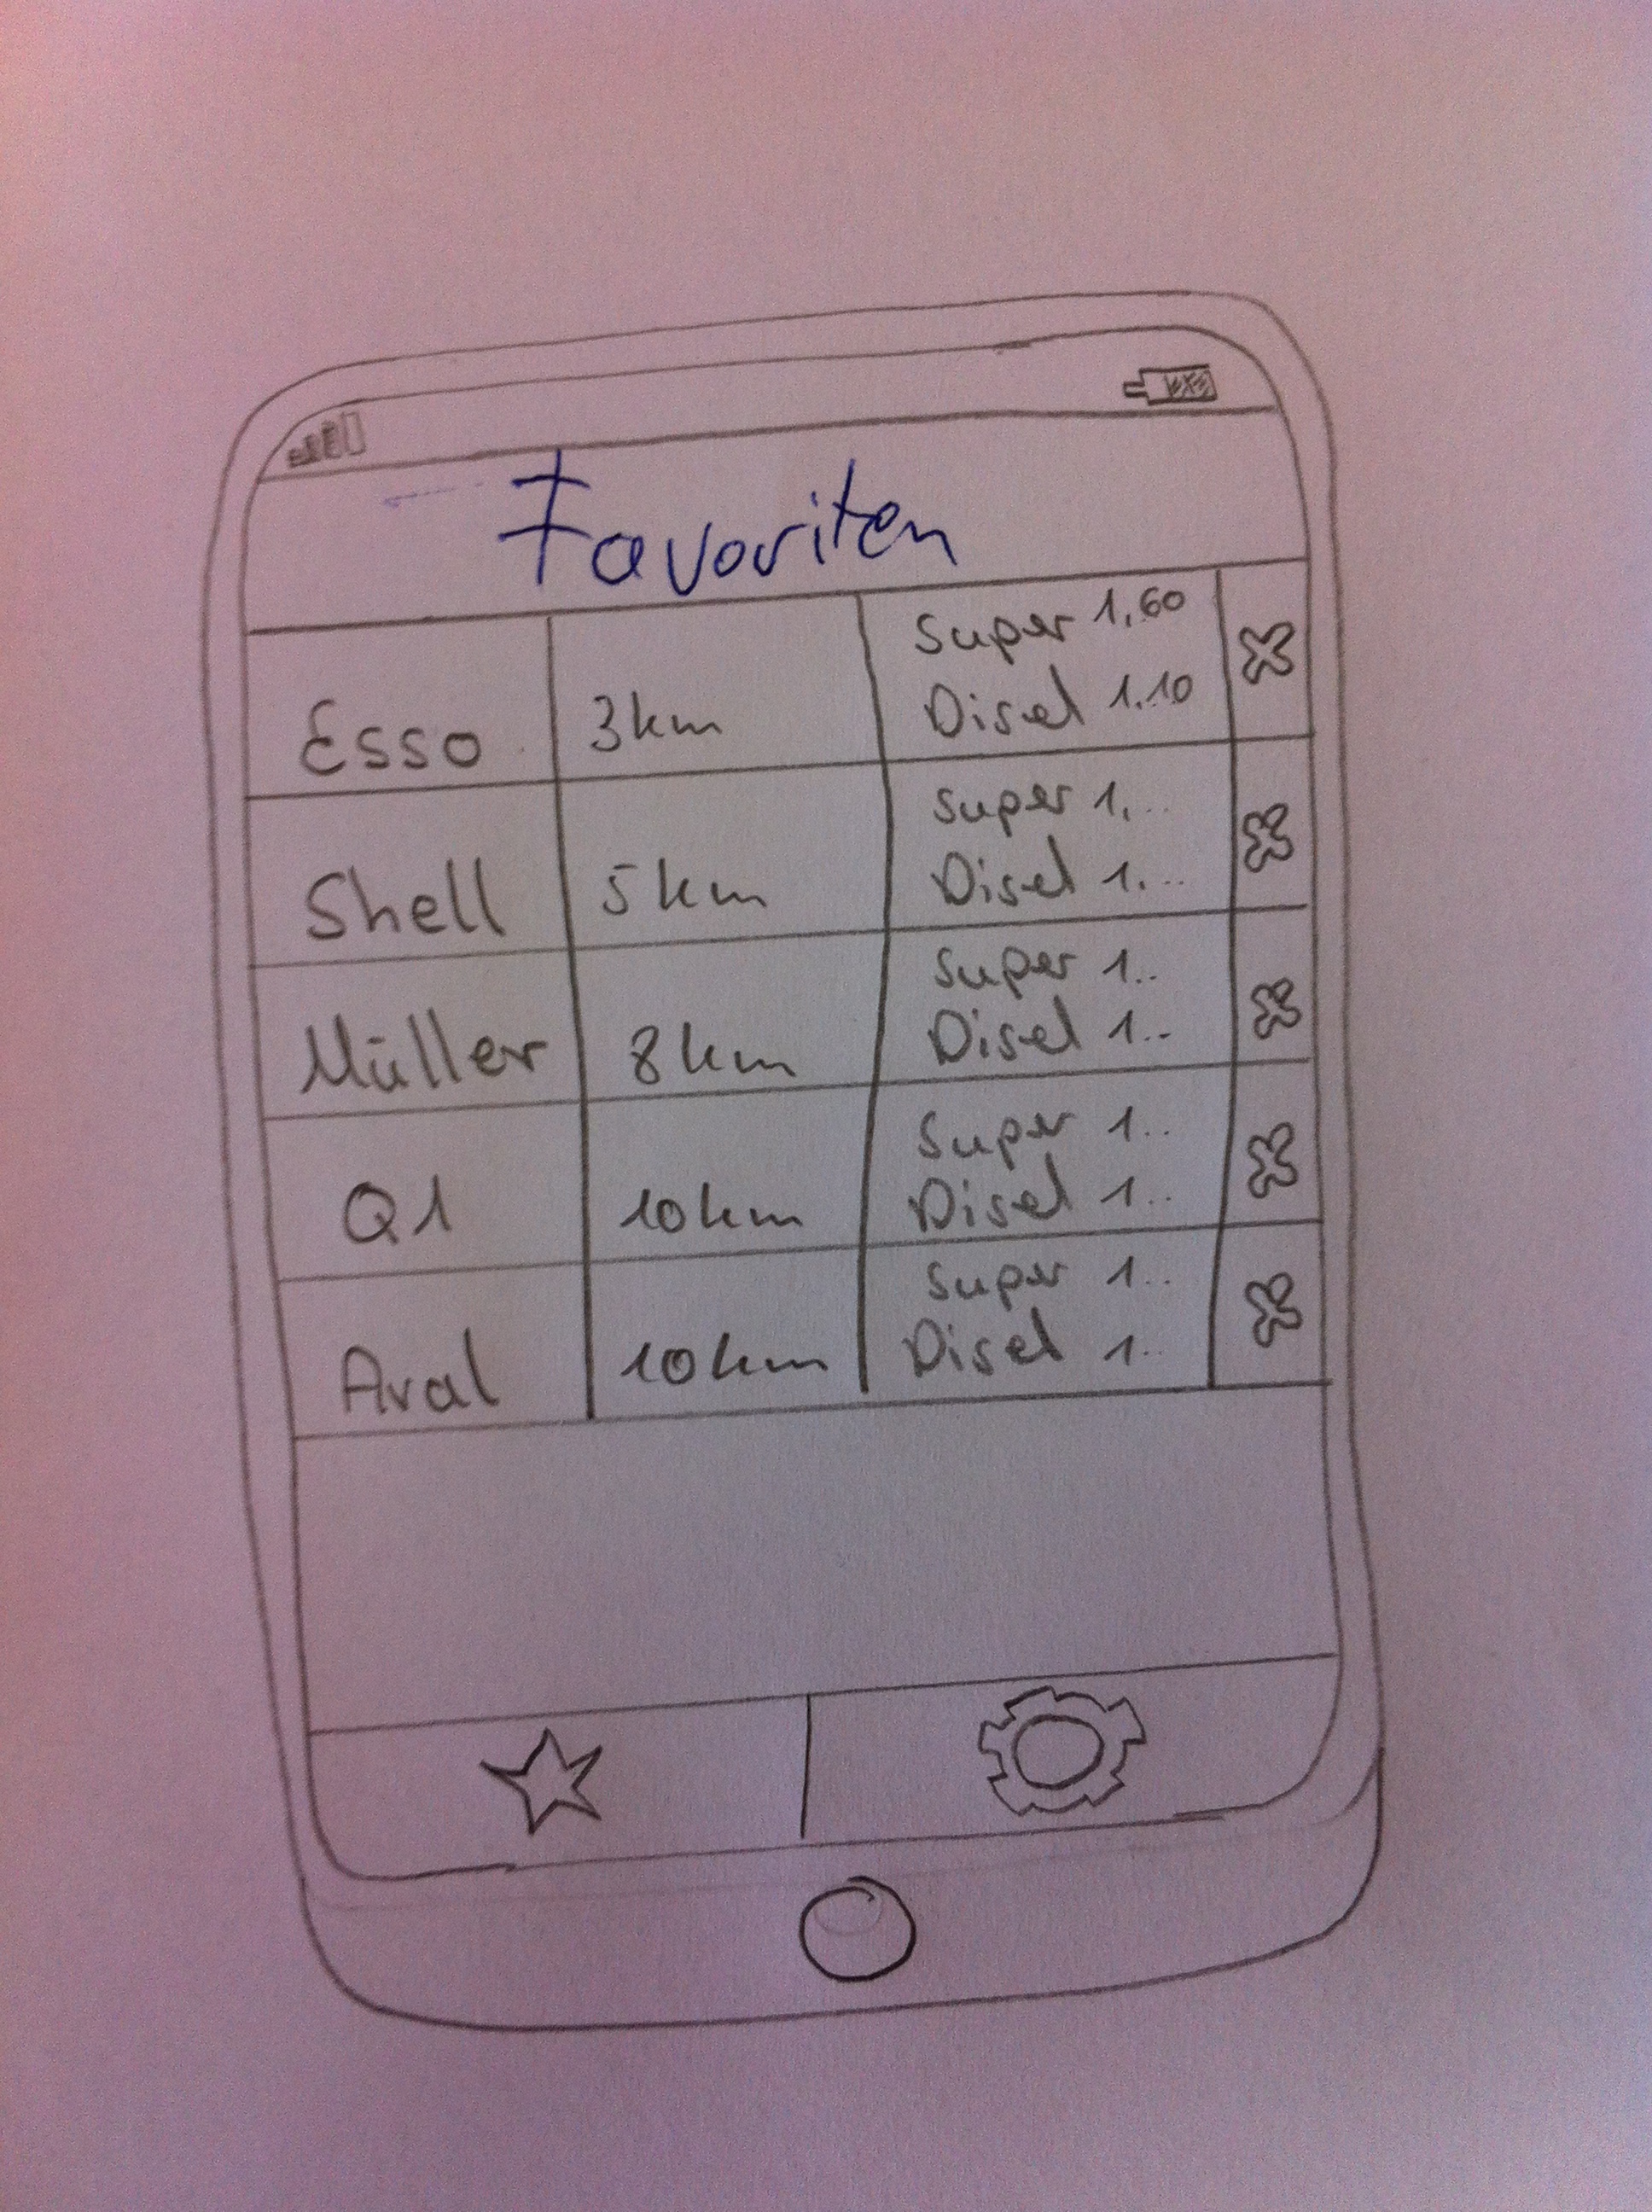 Favoriten
Esso 3km Super 1,60
Disel 1.10
Shell 5km Super 1,...
Disel 1....
Müller 8km Super 1..
Disel 1..
Q1 10km Super 1..
Disel 1..
Aral 10km Super 1..
Disel 1..